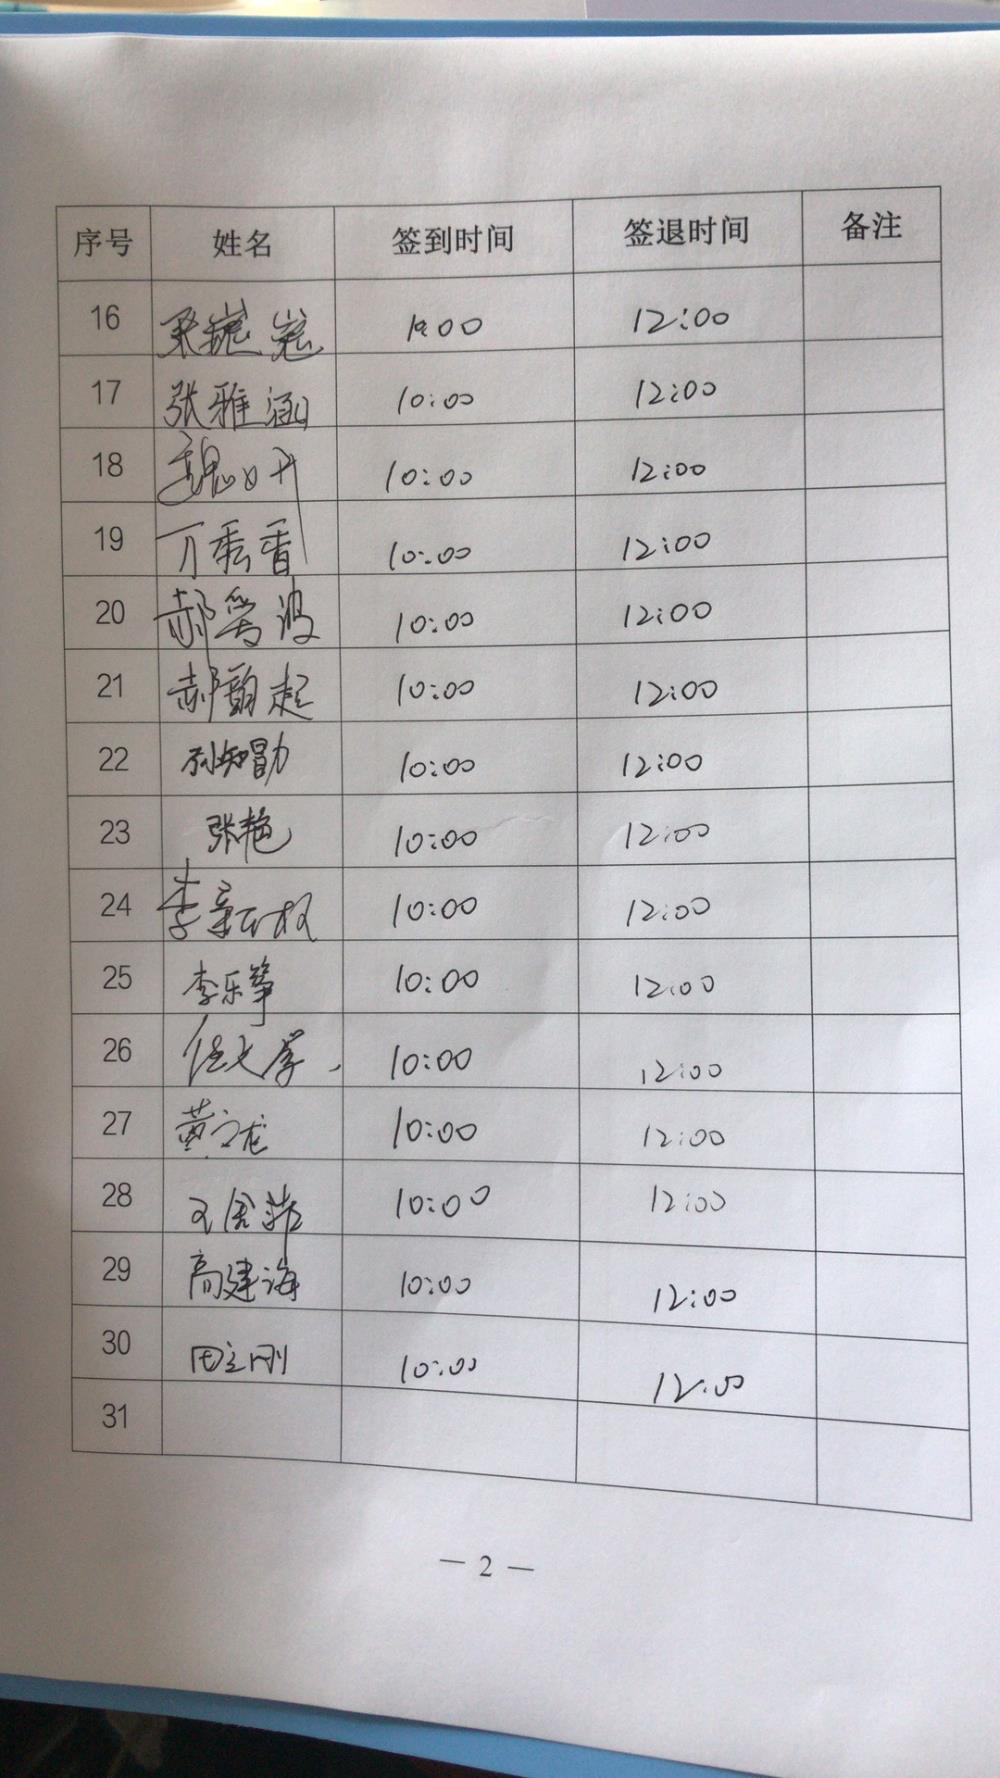 序号 姓名 签到时间 签退时间 备注
16 10:00 12:00
17 张雅涵 10:00 12:00
18 魏 10:00 12:00
19 丁秀香 10:00 12:00
20 郝 波 10:00 12:00
21 郝韵起 10:00 12:00
22 孙知勖 10:00 12:00
23 张艳 10:00 12:00
24 李新权 10:00 12:00
25 李乐筝 10:00 12:00
26 10:00 12:00
27 黄文龙 10:00 12:00
28 10:00 12:00
29 高建海 10:00 12:00
30 田立刚 10:00 12:00
31
— 2 —